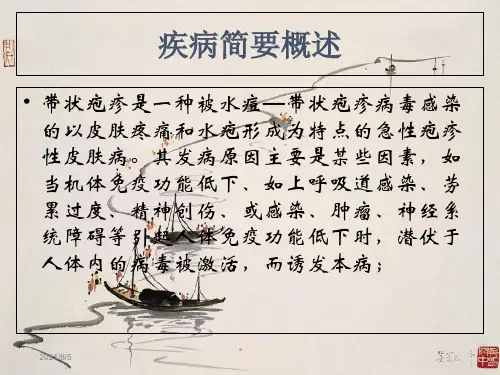 疾病简要概述
• 带状疱疹是一种被水痘—带状疱疹病毒感染
的以皮肤疼痛和水疱形成为特点的急性疱疹
性皮肤病。其发病原因主要是某些因素，如
当机体免疫功能低下、如上呼吸道感染、劳
累过度、精神创伤、或感染、肿瘤、神经系
统障碍等引起人体免疫功能低下时，潜伏于
人体内的病毒被激活，而诱发本病；